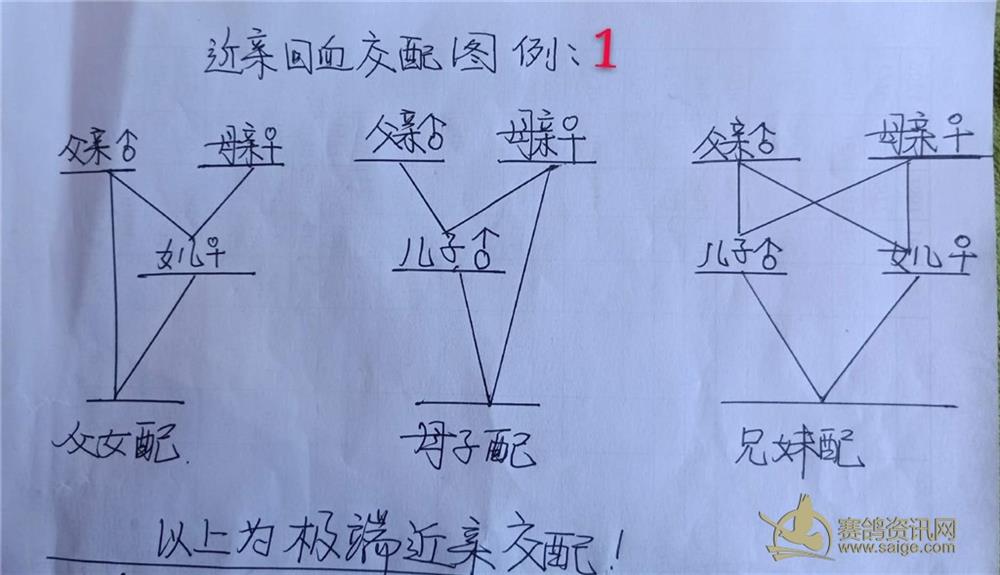 近亲回血交配图例：1
父亲♂ 母亲♀ 父亲♂ 母亲♀ 父亲♂ 母亲♀
女儿♀ 儿子♂ 儿子♂ 女儿♀
父女配. 母子配 兄妹配
以上为极端近亲交配！
赛鸽资讯网
www.saige.com